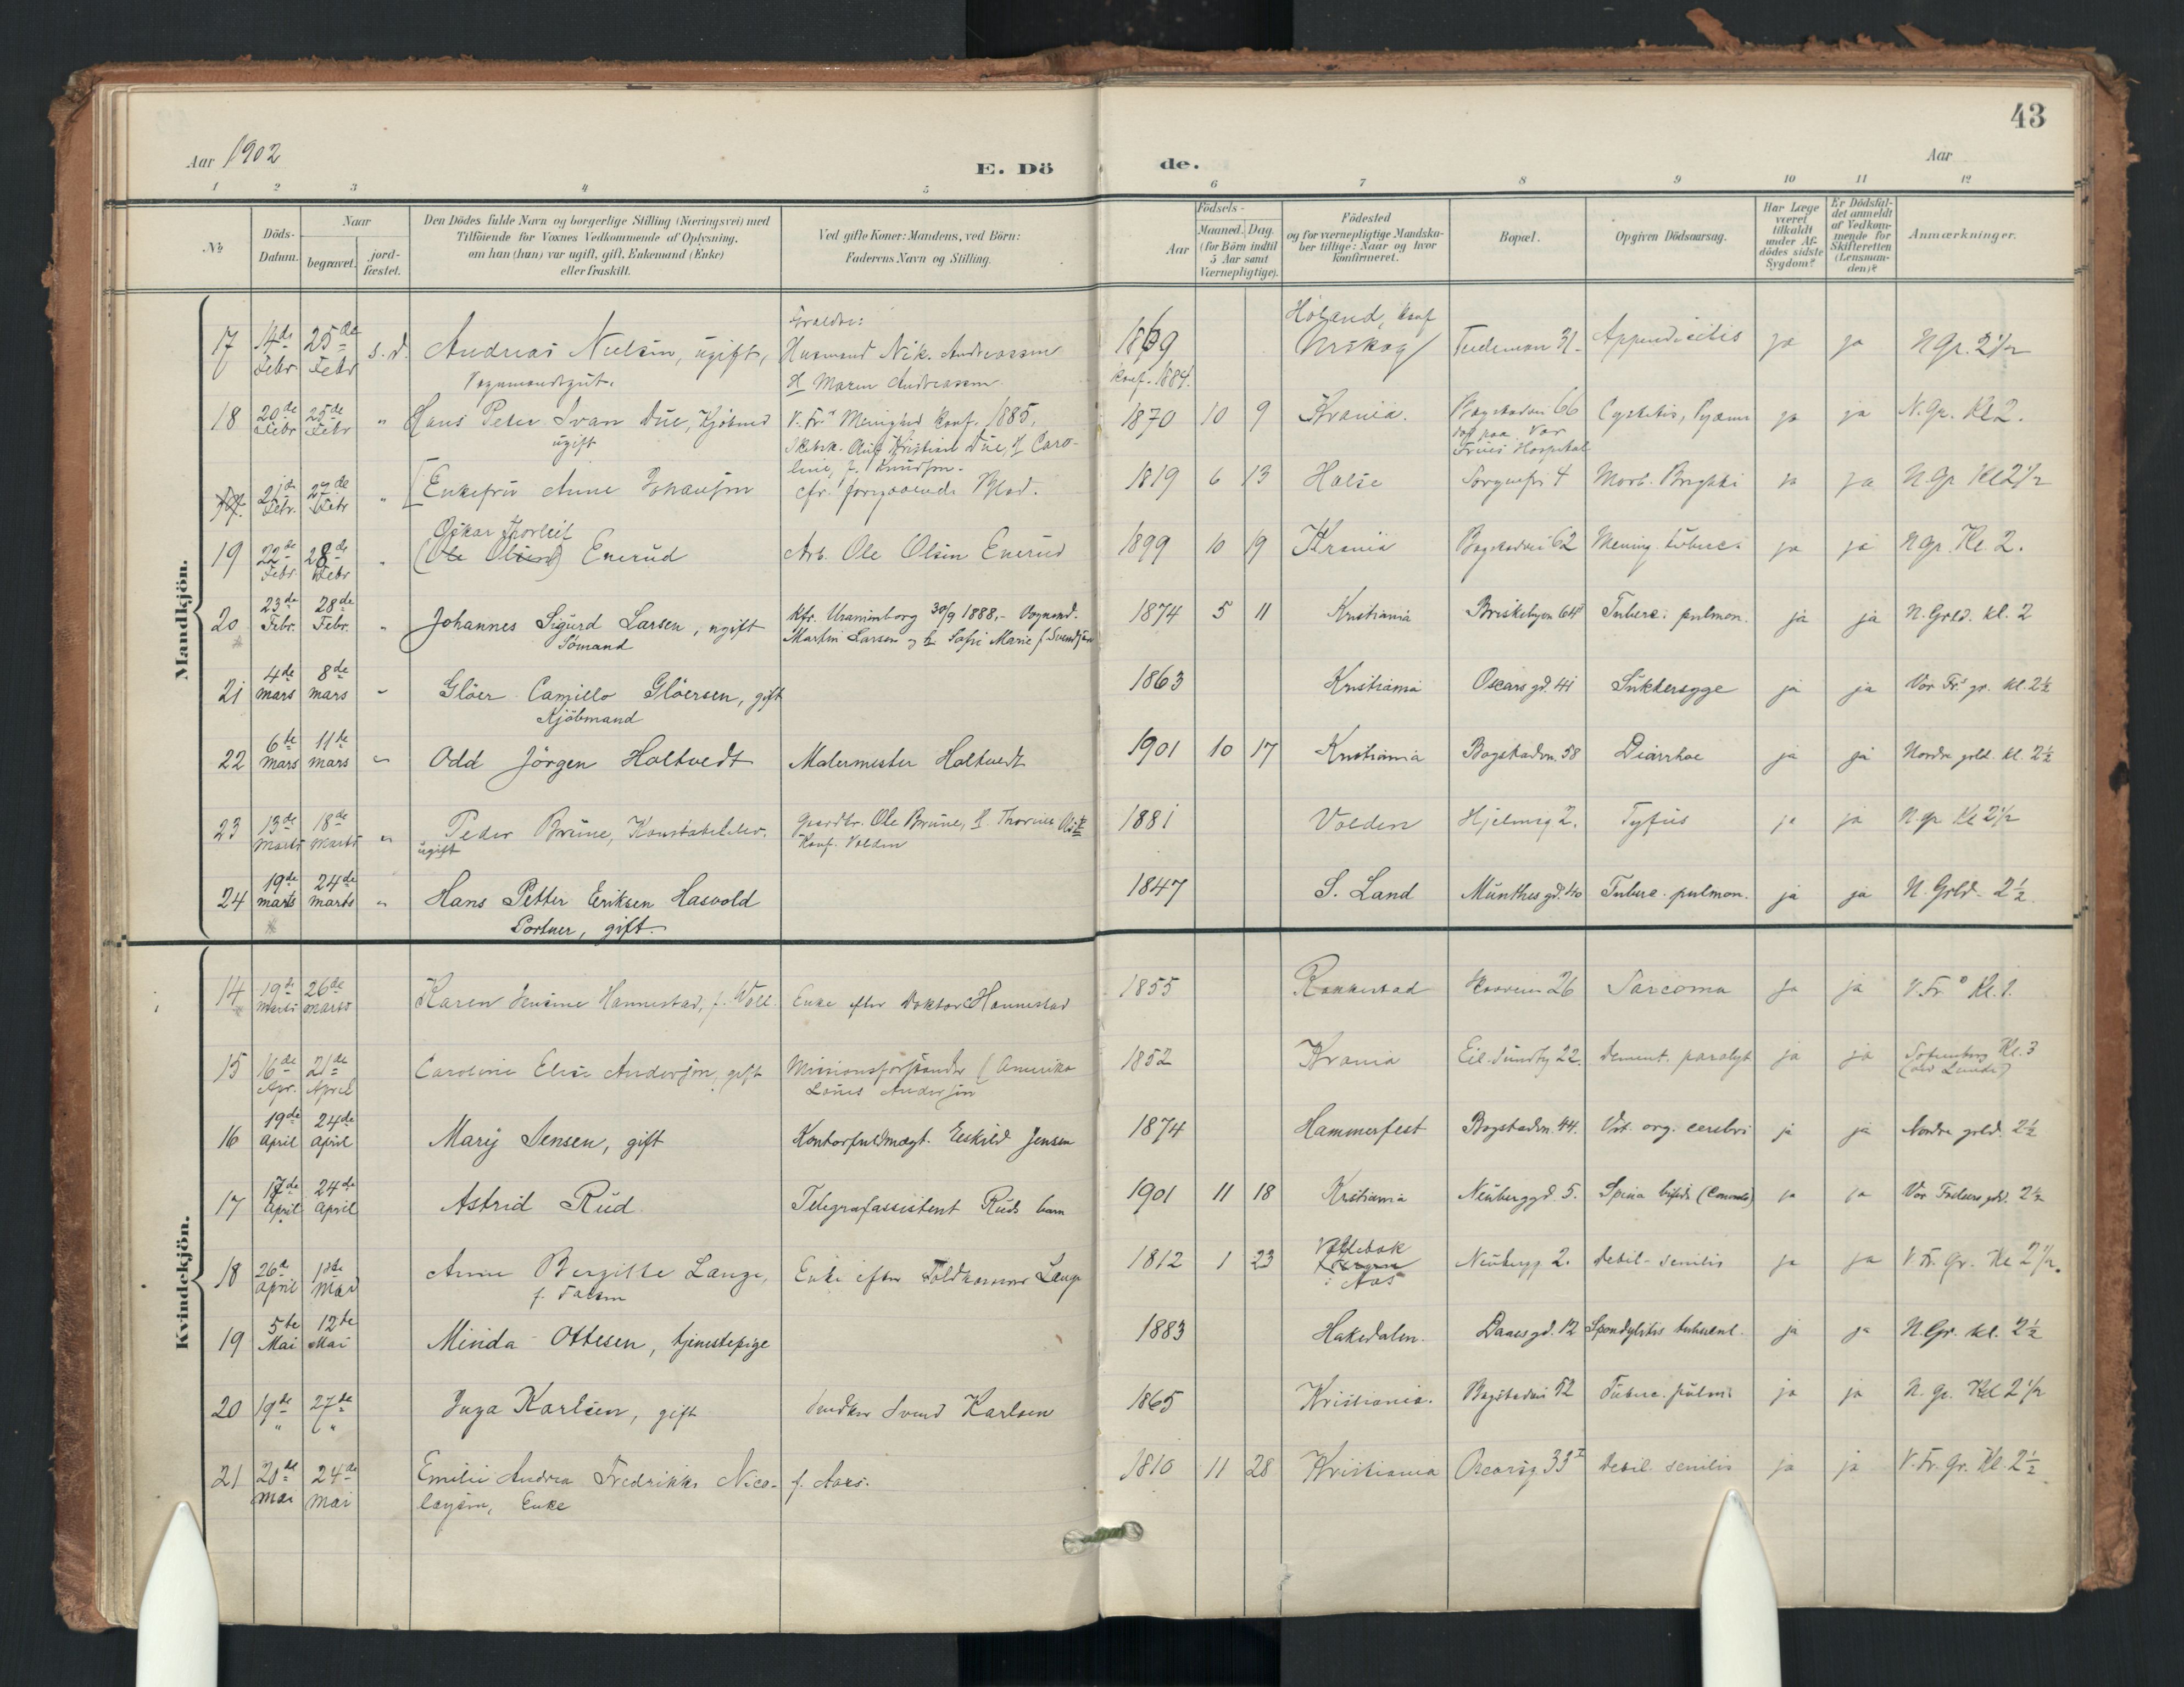 43
Aar 1902
E. Dö de.
Aar
1 2 3 4 5 6 7 8 9 10 11 12
No
Döds-Datum.
Naar
begravet.
jord-fæstet.
Den Dödes fulde Navn og borgerlige Stilling (Næringsvei) med
Tilföiende for Voxnes Vedkommende af Oplysning,
om han (hun) var ugift, gift, Enkemand (Enke)
eller fraskilt.
Ved gifte Koner: Mandens, ved Börn:
Faderens Navn og Stilling.
Födsels-
Aar
Maaned. Dag.
(for Börn indtil
5 Aar samt
Værnepligtige).
Födested
og for værnepligtige Mandska-
ber tillige: Naar og hvor
konfirmeret.
Bopæl.
Opgiven Dödsaarsag.
Har Læge
været
tilkaldt
under Af-
dödes sidste
Sygdom?
Er Dödsfal-
det anmeldt
af Vedkom-
mende for
Skifteretten
(Lensman-
den)?
Anmærkninger.
Mandkjön.
Forældre:
Höland, konf
17 14de Febr. 25de Febr s.d. Andreas Nielsen, ugift, Husmand Nik. Andreassen 1869 Urskog Tidemann 31 Appendicitis ja ja N Gr. 2 1/2
Vognmandsgut. H Maren Andreassen konf. 1884.
18 20de Febr 25de Febr " Hans Peter Ivan Due, Kjöbmd V. Frs Menighed konf. 1885, 1870 10 9 Krania. Bogstadvn 66 Cystitis, Pyæmi ja ja N. Gr. Kl 2.
ugift Kristian Due, H Caro-
död paa Vor
line, f. Knudsen. Frues Hospital
21de Febr. 27de Febr " [Enkefru Anne Johansen cfr. foregaaende Blad. 1819 6 13 Halse Sorgenfri 4 Morb. Brightii ja ja N. Gr Kl 2 1/2
Oskar Thorleif
19 22de Febr. 28de Febr " (Ole Olsens) Enerud Arb. Ole Olsen Enerud 1899 10 19 Krania Bogstadvei 62 Mening. tuberc. ja ja N gr. Kl 2.
20 23de Febr. 28de Febr. " Johannes Sigurd Larsen, ugift Kfr. Uranienborg 30/9 1888,- Vognmd. 1874 5 11 Kristiania Briskebyen 64 Tuberc. pulmon. ja ja N. Grld. kl. 2
Sömand Martin Larsen og H Sofie Marie f. Svendsen
21 4de mars 8de mars " Glöer Camillo Glöersen, gift 1863 Kristiania Oscars gd. 41 Sukkersyge ja ja Vor Frs gr. kl. 2 1/2
Kjöbmand
22 6te mars 11te mars " Odd Jörgen Holtvedt Malermester Holtvedt 1901 10 17 Kristiania Bogstadvn. 58 Diarrhoe ja ja Nordre grld. kl. 2 1/2
23 13de Marts 18de Marts " Peder Brune, Konstabelelev. Gaardbr. Ole Brune, H. Thorine 1881 Volden Hjelmsg 2. Tyfus ja ja N. gr Kl 2 1/2
ugift Konf. Volden
24 19de marts 24de marts " Hans Petter Eriksen Hasvold 1847 S. Land Munthes gd. 40 Tuberc. pulmon. ja ja N. Grld. 2 1/2
Portner, gift.
Kvindekjön.
14 19de Marts 26de marts Karen Jensine Hannestad, f. Woll. Enke efter Doktor Hannestad 1855 Rakkestad 26 Sarcoma ja ja V. Fr. Kl. 1.
15 16de Apr. 21de April Caroline Elise Andersen, gift Missionsforstander (Amerika 1852 Krania Eil. Sundtsg 22. Dement. paralyt ja ja Kl. 3
Louis Andersen (ved Lunde)
16 19de April 24de April Mary Jensen, gift Kontorfuldmægt. Eskild Jensen 1874 Hammerfest Bogstadvn. 44. Vit. org. cerebri ja ja Nordre grld. 2 1/2
17 17de April 24de April Astrid Rud. Telegrafassistent Ruds barn 1901 11 18 Kristiania Neuberggd. 5. Spina bifida ja ja Vor Frelsers grld. 2 1/2
18 26de April 1ste Mai Anne Bergitte Lange, Enke efter Toldkasserer Lange 1812 1 23 Vollebæk i Aas Neubergg 2. Debil. senilis ja ja V. Fr. Gr. Kl 2 1/2.
19 5te Mai 12te Mai Minda Ottesen, tjenestepige 1883 Hakedalen. Daaes gd. 12 Spondylitis tubercul. ja ja N. Gr. kl. 2 1/2
20 19de " 27de " Inga Karlsen, gift Snedker Svend Karlsen 1865 Kristiania. Bogstadvei 52 Tuberc. pulm. ja ja N. Gr. Kl 2 1/2
21 20de Mai 24de Mai Emilie Andrea Fredrikke Nico- f. Aars. 1810 11 28 Kristiania Oscarsg 33 I Debil. senilis ja ja V. Fr. Gr. Kl. 2 1/2
laysen, Enke